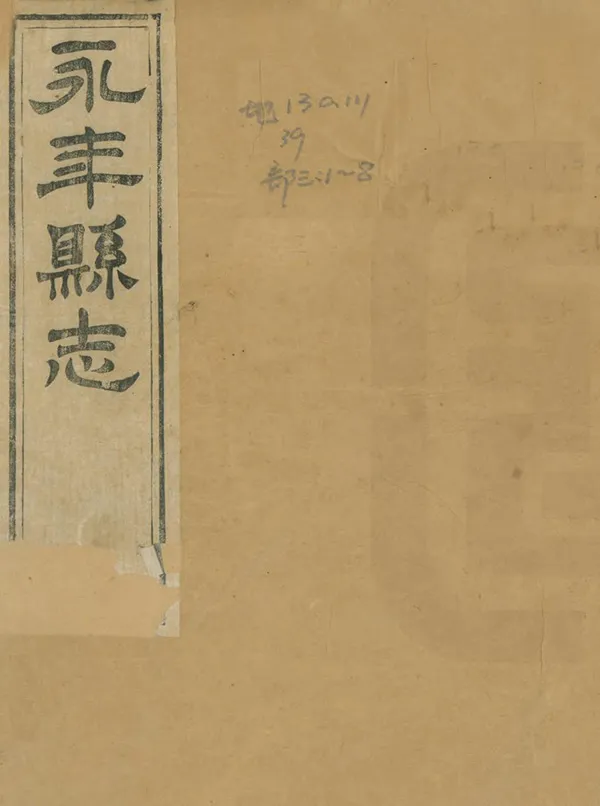 永丰縣志
地130.111
39
部三:1~8